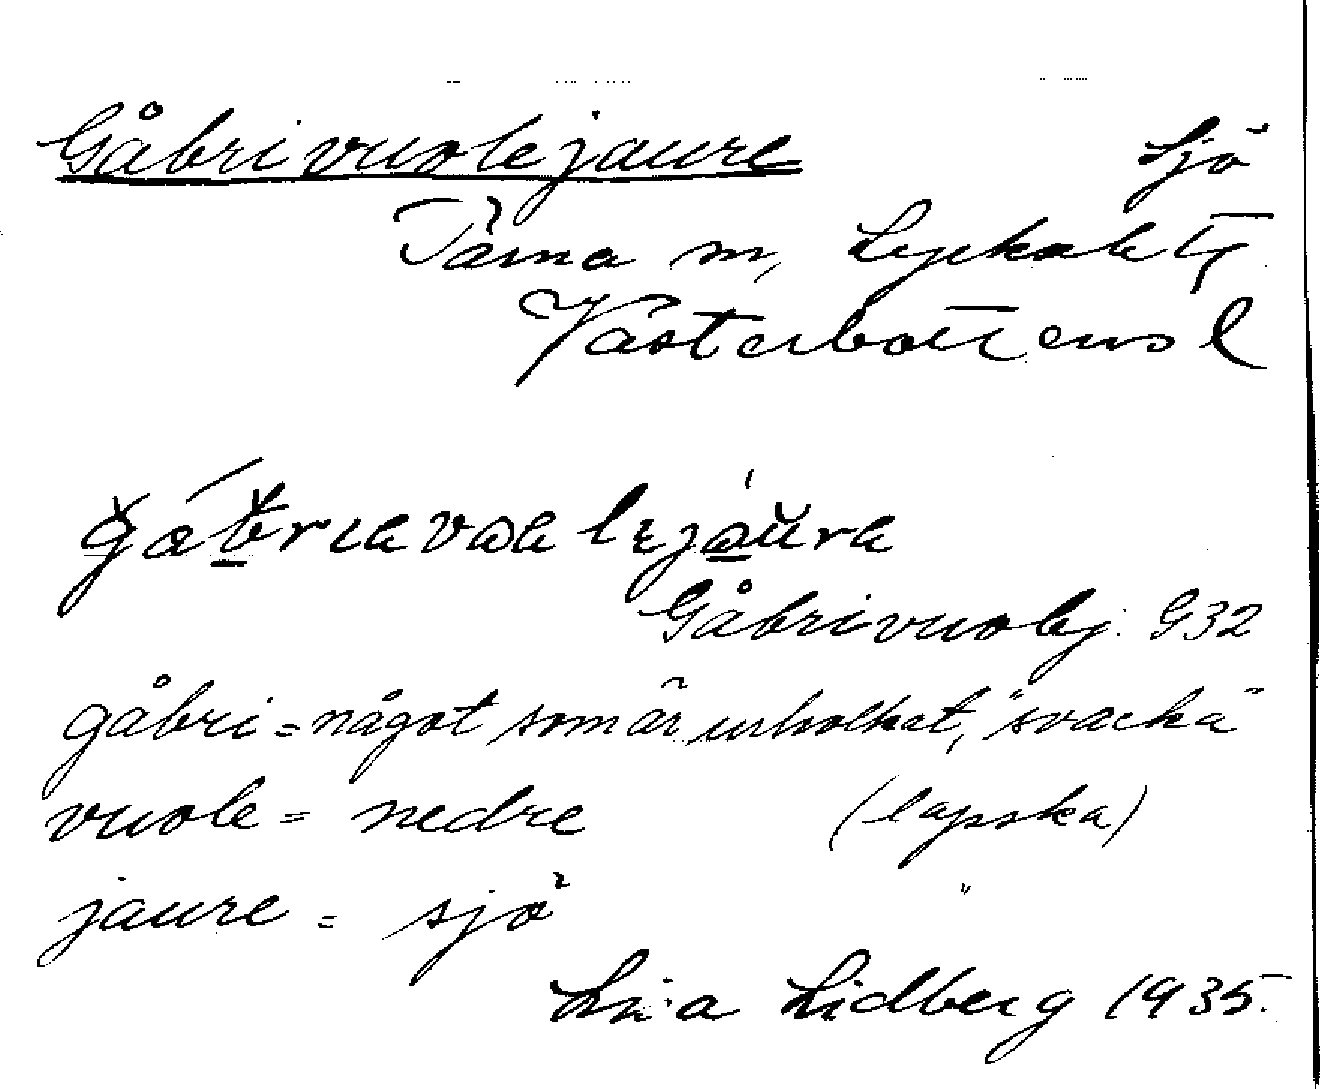 Gåbrivuolejaure Sjö
Tärna sn, Lycksele tg
Västerbottens l
Gåbrivuolj. G32
gåbri = något som är urholkat, "svacka"
vuole = nedre (lapska)
jaure = sjö "
Lidberg 1935.